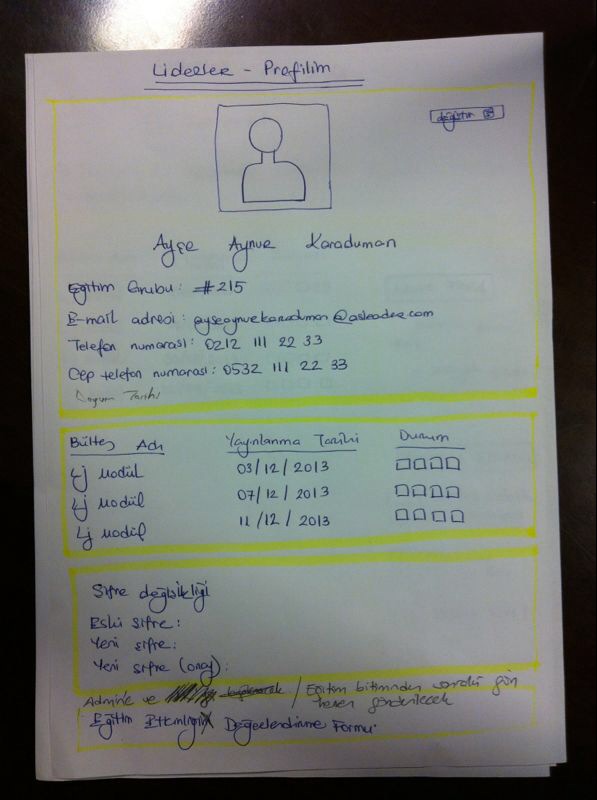 Liderler - Profilim
değiştir
Ayşe Aynur Karaduman
Eğitim Grubu: #215
E-mail adresi: ayseaynurkaraduman@asleader.com
Telefon numarası: 0212 111 22 33
Cep telefon numarası: 0532 111 22 33
Doğum Tarihi
Bülten Adı Yayınlanma Tarihi Durum
Lj Modül 03/12/2013
Lj Modül 07/12/2013
Lj Modül 11/12/2013
Şifre değişikliği
Eski şifre:
Yeni şifre:
Yeni şifre (onay):
Admin'e ve / Eğitim bitiminden sonraki gün
Eğitim Etkinliğini Değerlendirme Formu